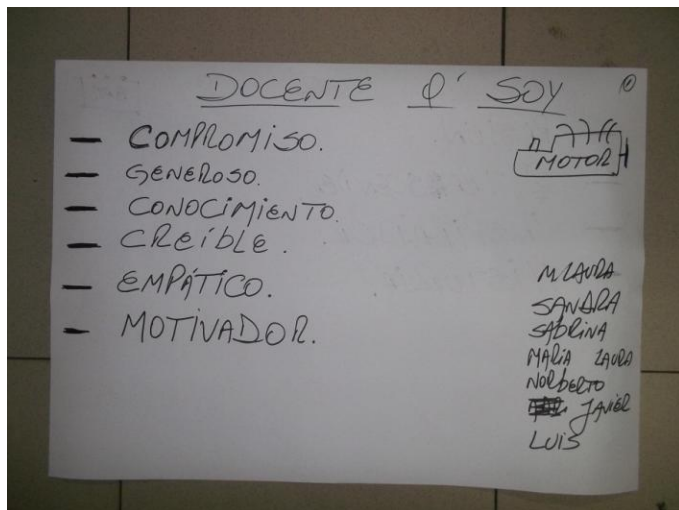 DOCENTE Q' SOY
- COMPROMISO.
- GENEROSO.
- CONOCIMIENTO.
- CREÍBLE.
- EMPÁTICO.
- MOTIVADOR.
MOTOR
M. LAURA
SANDRA
SABRINA
MARÍA LAURA
NORBERTO
JAVIER
LUIS